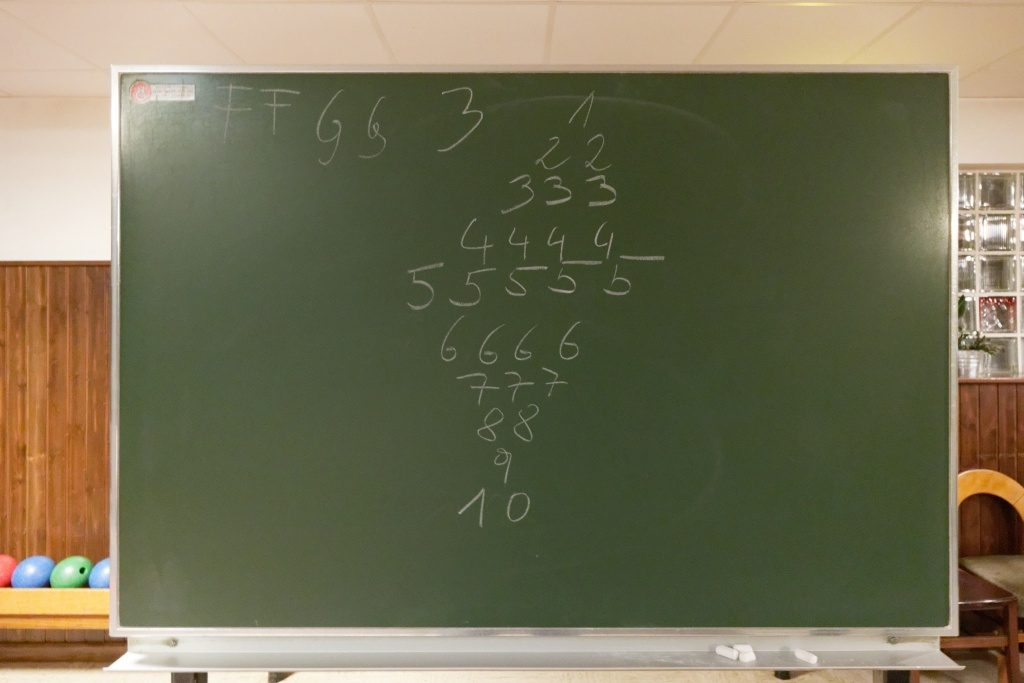 FF GG 3
1
2 2
3 3 3
4 4 4 4
5 5 5 5 5
6 6 6 6
7 7 7
8 8
9
10